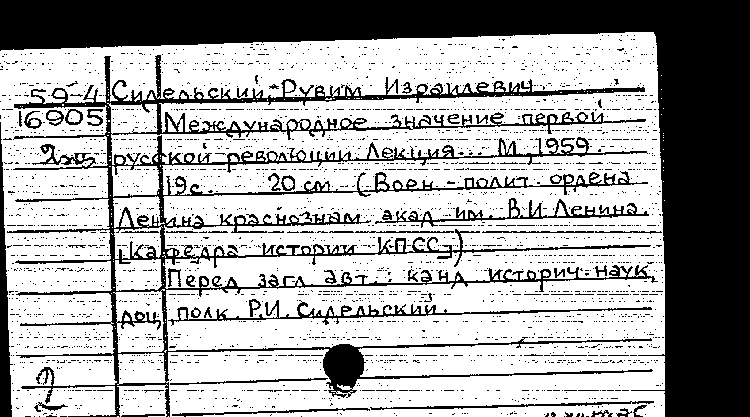 59-4 Сидельский, Рувим Израилевич.
16905 Международное значение первой
2жз русской революции. Лекция... М., 1959.
19с. 20 см. (Воен.-полит. ордена
Ленина краснознам. акад. им. В.И. Ленина.
[Кафедра истории КПСС])
Перед загл. авт.: канд. историч. наук,
доц., полк. Р.И. Сидельский.